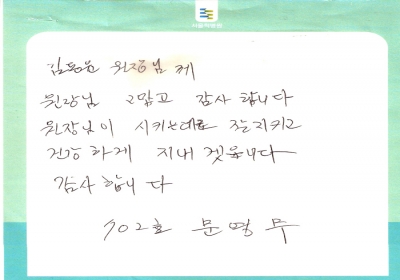 김동윤 원장님 께
원장님 고맙고 감사 합니다
원장님이 시키는데로 잘 지키고
건강 하게 지내 겟읍니다
감사 합니 다
702호 문명무